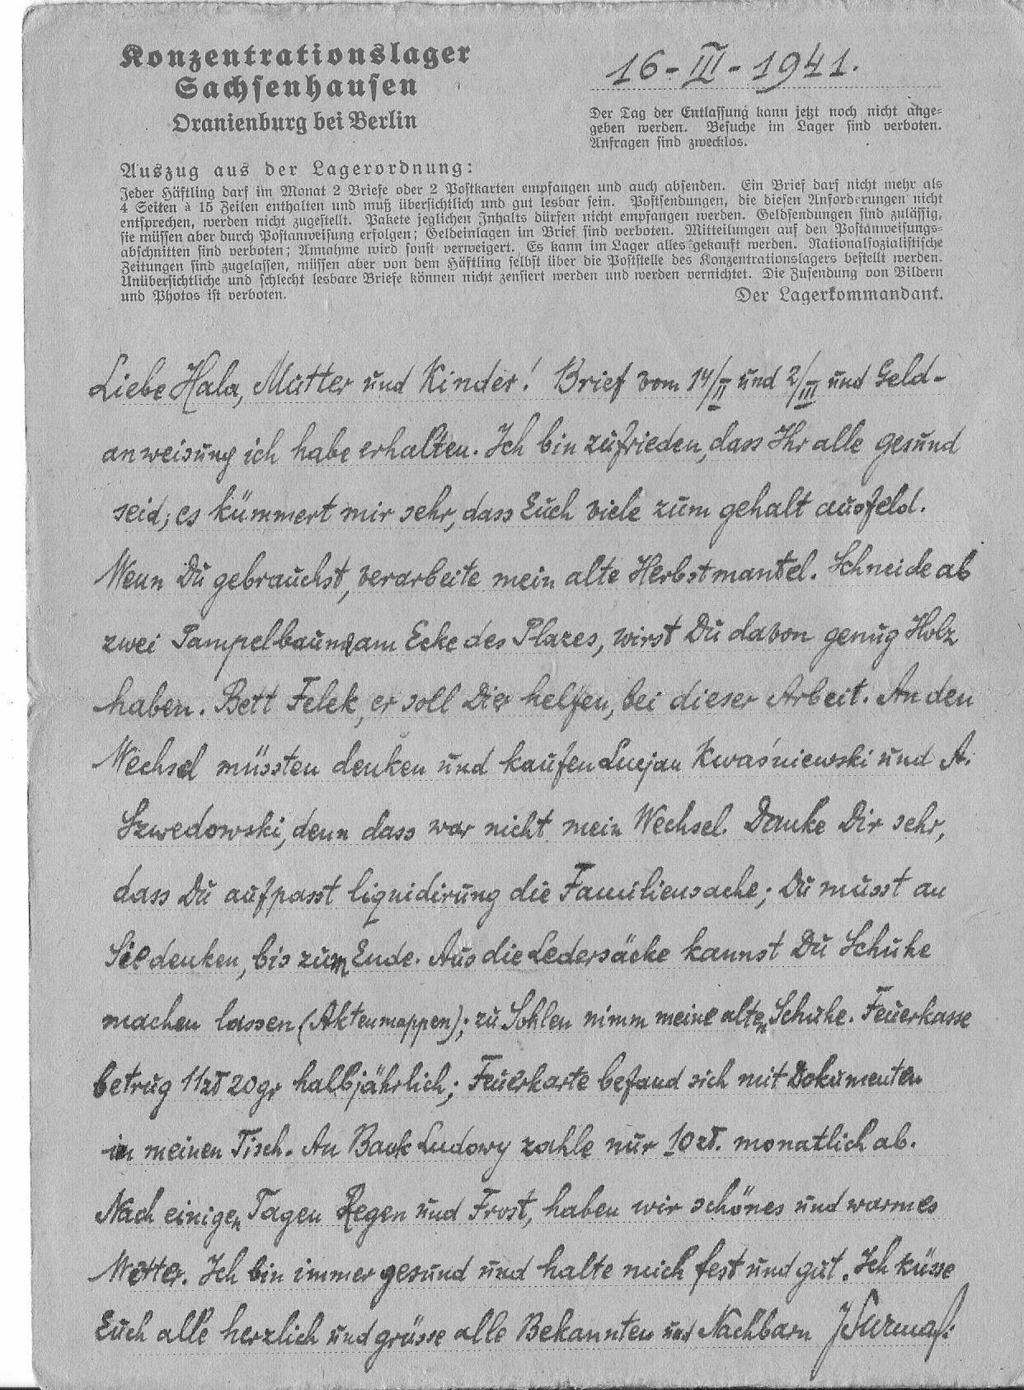 Konzentrationslager
Sachsenhausen
Oranienburg bei Berlin
16-III-1941.
Der Tag der Entlassung kann jetzt noch nicht ange-
geben werden. Besuche im Lager sind verboten.
Anfragen sind zwecklos.
Auszug aus der Lagerordnung:
Jeder Häftling darf im Monat 2 Briefe oder 2 Postkarten empfangen und auch absenden. Ein Brief darf nicht mehr als
4 Seiten à 15 Zeilen enthalten und muß übersichtlich und gut lesbar sein. Postsendungen, die diesen Anforderungen nicht
entsprechen, werden nicht zugestellt. Pakete jeglichen Inhalts dürfen nicht empfangen werden. Geldsendungen sind zulässig,
sie müssen aber durch Postanweisung erfolgen; Geldeinlagen im Brief sind verboten. Mitteilungen auf den Postanweisungs-
abschnitten sind verboten; Annahme wird sonst verweigert. Es kann im Lager alles gekauft werden. Nationalsozialistische
Zeitungen sind zugelassen, müssen aber von dem Häftling selbst über die Poststelle des Konzentrationslagers bestellt werden.
Unübersichtliche und schlecht lesbare Briefe können nicht zensiert werden und werden vernichtet. Die Zusendung von Bildern
und Photos ist verboten.
Der Lagerkommandant.
Liebe Hala, Mutter und Kinder! Brief vom 14/II und 2/III und Geld-
anweisung ich habe erhalten. Ich bin zufrieden, dass Ihr alle gesund
seid; es kümmert mir sehr, dass Euch viele zum gehalt ausfeld.
Wenn Du gebrauchst, verarbeite mein alte Herbstmantel. Schneide ab
zwei am Ecke des Plazes, wirst Du davon genug Holz
haben. Bett Felek, er soll Dir helfen, bei dieser Arbeit. An den
Wechsel müssten denken und kaufen Lucjan Kwaśniewski und A.
Szwedowski, denn dass war nicht mein Wechsel. Danke Dir sehr,
dass Du aufpasst liquidirung die Familiensache; Du musst an
Sie denken, bis zum Ende. Aus die Ledersäcke kannst Du Schuhe
machen lassen (Aktenmappen); zu Sohlen nimm meine alten Schuhe. Feuerkasse
betrug 11 zł 20 gr halbjährlich; Feuerkarte befand sich mit Dokumenten
in meinen Tisch. An Bank Ludowy zahle nur 10 zł. monatlich ab.
Nach einigen Tagen Regen und Frost, haben wir schönes und warmes
Wetter. Ich bin immer gesund und halte mich fest und gut. Ich küsse
Euch alle herzlich und grüsse alle Bekannten und Nachbarn